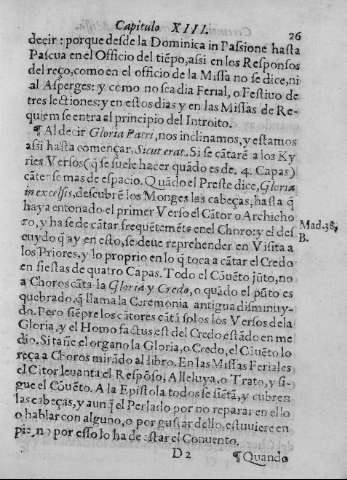 Capitulo XIII.
26
decir: porque desde la Dominica in Passione hasta
Pascua en el Officio del tiẽpo, assi en los Responsos
del reço, como en el officio de la Missa no se dice, ni
al Asperges: y como no sea dia Ferial, o Festivo de
tres lectiones: y en estos dias y en las Missas de Re-
quiem se entra al principio del Introito.
¶ Al decir Gloria Patri, nos inclinamos, y estamos
assi hasta començar, Sicut erat. Si se cãtarẽ a los Ky
ries Versos (q̃ se suele hacer quãdo es de. 4. Capas)
cãtense mas de espacio. Quãdo el Preste dice, Gloria
in excelsis, descubrẽ los Monges las cabeças, hasta q̃
haya entonado el primer Verso el Cãtor o Archicho
ro, y ha se de cãtar frequẽtemẽte en el Choro: y el des
cuydo q̃ ay en esto, se deve reprehender en Visita a
los Priores, y lo proprio en lo q̃ toca a cãtar el Credo
en fiestas de quatro Capas. Todo el Cõvẽto jũto, no
a Choros cãta la Gloria y Credo, o quãdo el pũto es
quebrado, q̃ llama la Ceremonia antigua disminuy-
do. Pero siẽpre los cãtores cãtã solos los Versos de la
Gloria, y el Homo factus est del Credo estãdo en me
dio. Si tañe el organo la Gloria, o Credo, el Cõvẽto lo
reça a Choros mirãdo al libro. En las Missas Feriales
el Cãtor levanta el Respõso, Alleluya, o Trato, y si-
gue el Cõvẽto. A la Epistola todos se siẽtã, y cubren
las cabeças, y aunq̃ el Perlado por no reparar en ello
o hablar con alguno, o por gustar dello, estuviere en
pie, no por esso lo ha de estar el Convento.
Mad. 38.
B.
D 2
¶ Quando